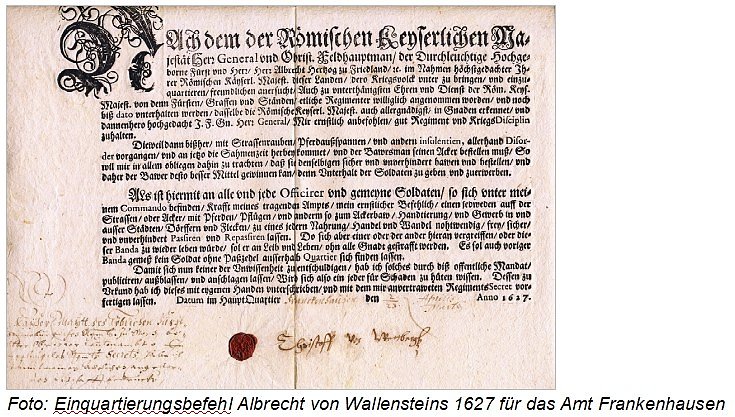 NAch dem der Römischen Keyserlichen Ma-
jestät Herr General vnd Obrist. Feldhauptman / der Durchleuchtige Hochge-
borne Fürst vnd Herr / Herr Albrecht Hertzog zu Friedland / ꝛc. im Nahmen höchstgedachter Ih-
rer Römischen Käyserl. Majest. dieser Landen / dero Kriegsvolck vnter zu bringen / vnd einzu-
quartieren / freundlichen anersucht / Auch zu vnterthänigsten Ehren vnd Dienst der Röm. Keys.
Majest. von denn Fürsten / Graffen vnd Ständen / etliche Regimenter williglich angenommen worden / vnd noch
biß dato vnterhalten werden / dasselbe die RömischeKeyserl. Majest. auch allergnädigst / in Gnaden erkennet / vnd
dannenhero hochgedacht J. F. Gn. Herr General / Mir ernstlich anbefohlen / gut Regiment vnd KriegsDisciplin
zuhalten.
Dieweil dann bißher / mit Strassenrauben / Pferdaußspannen / vnd andern insolentien, allerhand Disor-
der vorgangen / vnd an jetzo die Sahmenzeit herbey kommet / vnd der Bawresman seinen Acker bestellen muß / So
wil mir in allem obliegen dahin zu trachten / daß sie denselbigen sicher vnd vnverhindert bawen vnd bestellen / vnd
daher der Bawer desto besser Mittel gewinnen kan / denn Unterhalt der Soldaten zu geben vnd zuerwerben.
Als ist hiermit an alle vnd jede Officirer vnd gemeyne Soldaten / so sich vnter mei-
nem Commando befinden / Krafft meines tragenden Ampts / mein ernstlicher Befehlich / einen jedweden auff der
Strassen / oder Acker / mit Pferden / Pflügen / vnd andern so zum Ackerbaw / Handtierung / vnd Gewerb in vnd
ausser Städten / Dörffern vnd Flecken / zu eines jedern Nahrung / Handel vnd Wandel nohtwendig / frey / sicher /
vnd vnverhindert Pasiren vnd Repasiren lassen. Do sich aber einer oder der ander hieran vergreiffen / oder die-
ser Banda zu wieder leben würde / sol er an Leib vnd Leben / ohn alle Gnade gestrafft werden. Es sol auch voriger
Banda gemeß kein Soldat ohne Paßzedel ausserhalb Quartier sich finden lassen.
Damit sich nun keiner der Vnwissenheit zu entschuldigen / hab ich solches durch diß öffentliche Mandat /
publiciren / außblasen / vnd anschlagen lassen / Wird sich also ein jeder für Schaden zu hüten wissen. Dessen zu
Vrkund hab ich dieses mit eygenen Handen vnterschrieben / vnd mit dem mir anvertraweten RegimentsSecret vor-
fertigen lassen. Datum im HauptQuartier Franckenhausen den Aprilis Anno 1627.
Foto: Einquartierungsbefehl Albrecht von Wallensteins 1627 für das Amt Frankenhausen